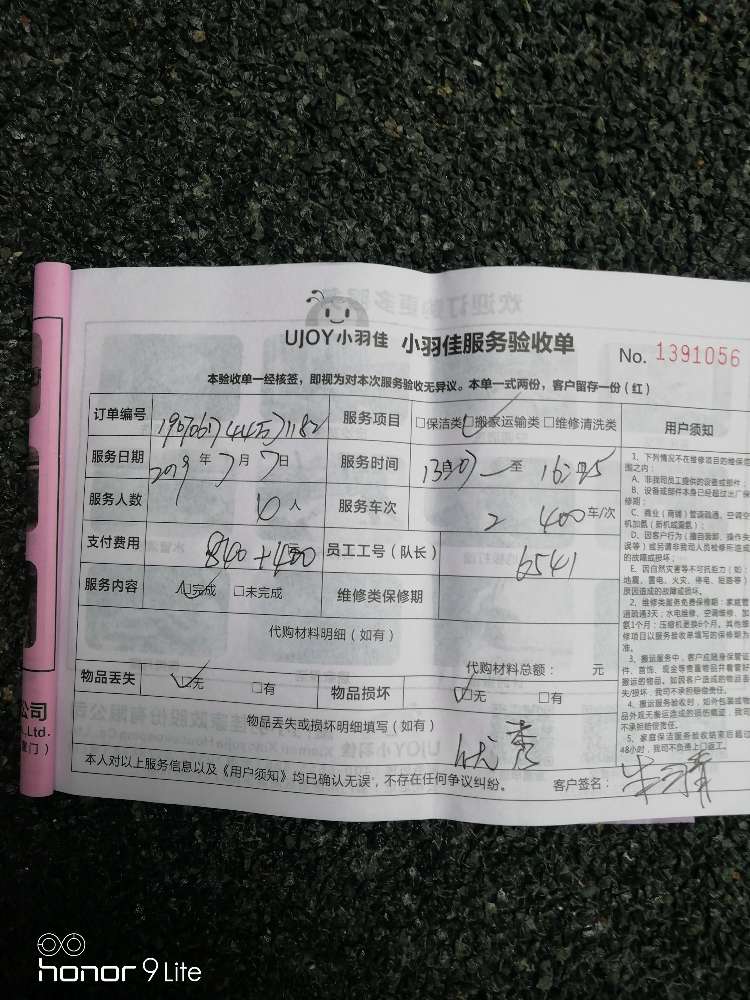 UJOY小羽佳 小羽佳服务验收单 No. 1391056
本验收单一经核签，即视为对本次服务验收无异议。本单一式两份，客户留存一份（红）
订单编号 服务项目 □保洁类 □搬家运输类 □维修清洗类 用户须知
服务日期 2019年7月7日 服务时间 至
服务人数 人 服务车次 2 400车/次
支付费用 840+400 员工工号（队长） 6541
服务内容 □完成 □未完成 维修类保修期
代购材料明细（如有）
代购材料总额： 元
物品丢失 □无 □有 物品损坏 □无 □有
物品丢失或损坏明细填写（如有）
优秀
本人对以上服务信息以及《用户须知》均已确认无误，不存在任何争议纠纷。 客户签名：
1、下列情况不在维修项目的维保范
围之内：
A、非我司员工提供的设备或部件；
B、设备或部件本身已经超过出厂保
修期；
C、商业（商铺）管道疏通、空调空
机加氨（新机或漏氨）；
D、因客户行为（擅自装卸、操作失
误等）或另请非我司人员检修所造成
的故障或损坏；
E、因自然灾害等不可抗力（如：
地震、雷电、火灾、停电、短路等）
原因造成的故障或损坏。
2、维修类服务免费保修期：家庭管
道疏通3天；水电维修、空调维修、加
氨1个月；压缩机更换6个月。其他维
修项目以服务验收单填写的保修期为
准。
3、搬运服务中，客户应随身保管证
件、首饰、现金等贵重物品并看管好
搬运的物品。如因客户造成的物品丢
失/损坏，我司不承担赔偿责任。
4、搬运服务时，如外包装或物
品外观无搬运造成的损伤痕迹，我司
不承担赔偿责任。
5、家庭保洁服务验收结束后超过
48小时，我司不负责上门返工。
公司
.,Ltd.
厦门）
honor 9 Lite